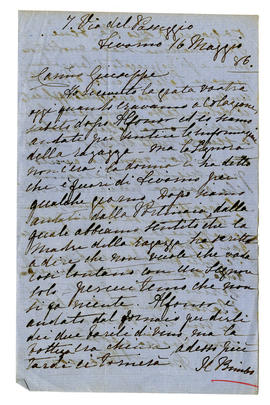 7, Via del Passeggio
Livorno 16 Maggio
86.
Carino Giuseppe
Ho ricevuto la grata vostra
oggi quando eravamo a colazione,
subito dopo Alfonso ed io siamo
andati per sentire le informazioni
della ragazza ma la Signora
non c'era la donna ha detto
che è fuori di Livorno per
qualche giorno. Dopo siamo
andati dalla Portinaia, della
quale abbiamo sentito che la
madre della ragazza ha scritto
a dire che non vuole che vada
così lontano con un Signor
solo perciò temo che non
si fa niente. Alfonso è
andato dal fornaio per dirli
dei due barili di vino, ma la
bottega era chiusa adesso più
tardi ci tornerà. Il Bimbo